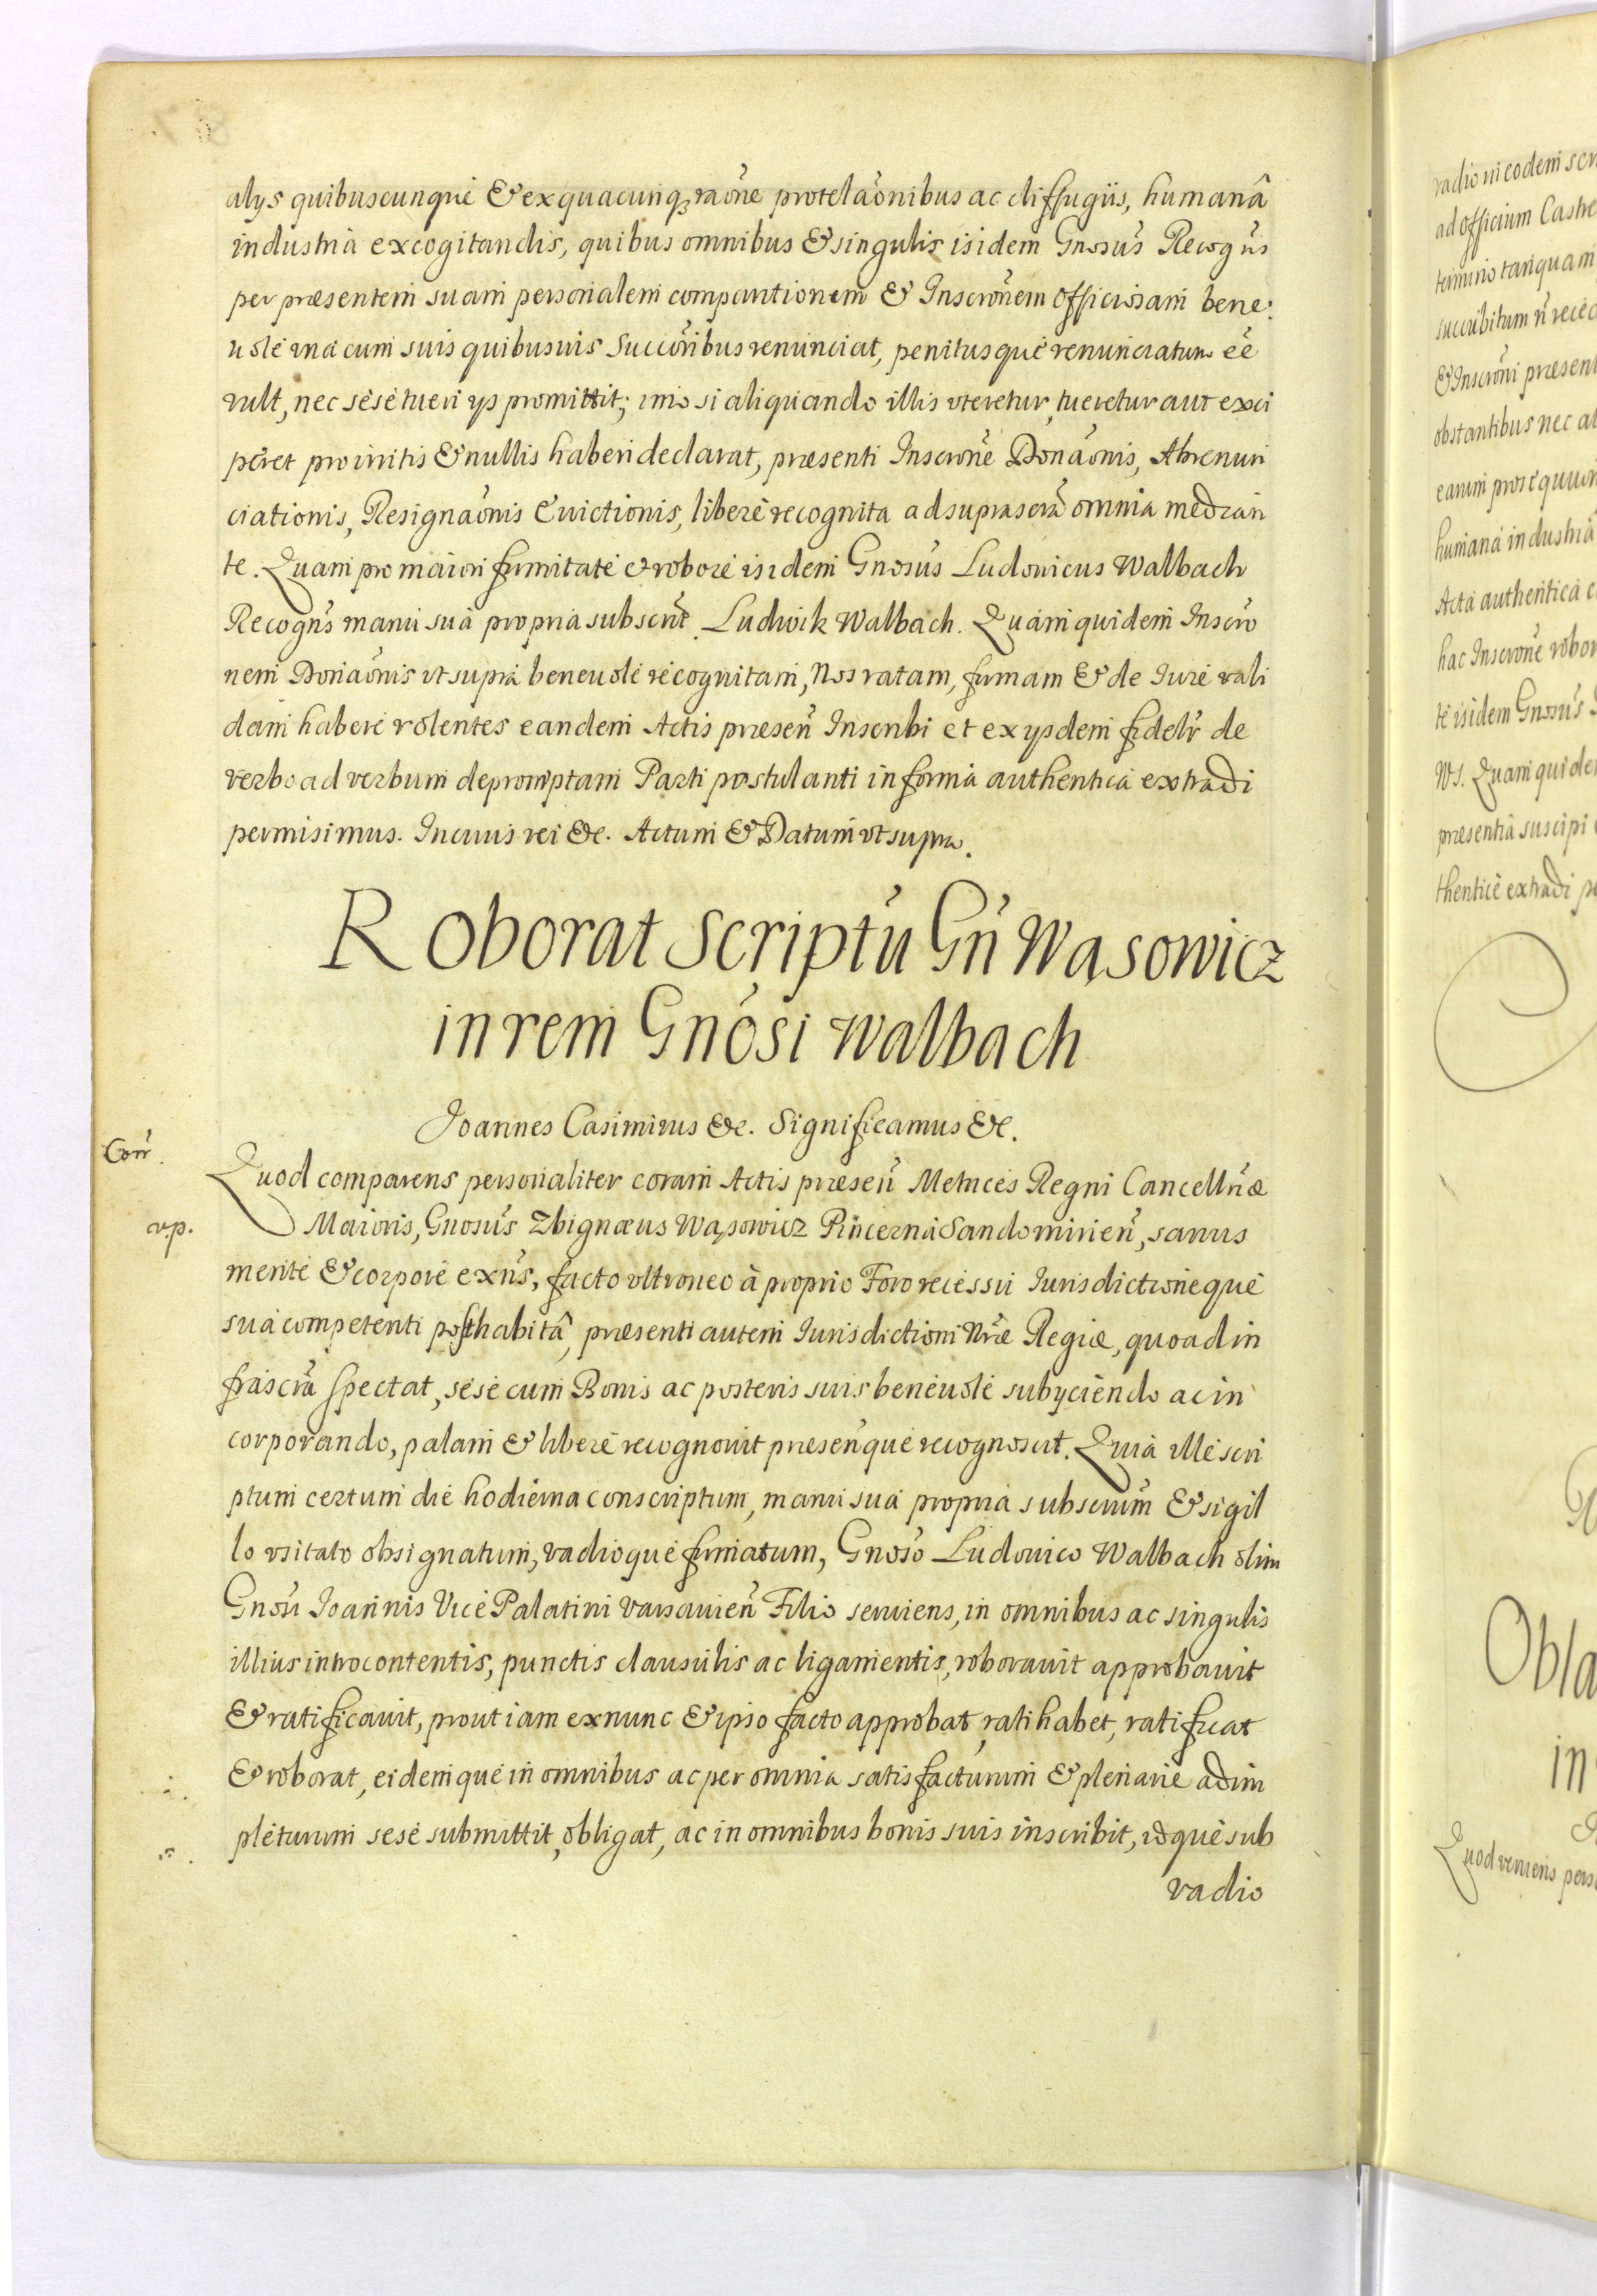 alys quibuscunque & ex quacunq; raõne protelaõnibus ac diffugijs, humanâ
industria excogitandis, quibus omnibus & singulis isidem Gnosus Recogñs
per præsentem suam personalem comparitionem & Inscrõnem officiosam bene:
uole una cum suis quibusuis Succõribus renunciat, penitusque renunciatum eē
vult, nec sese tueri ys promittit; imo si aliquando illis vteretur, tueretur aut exci
peret pro irritis & nullis haberi declarat, præsenti Inscrõne Donaõnis, Abrenun
ciationis, Resignaõnis Euictionis, libere recognita ad suprascrã omnia median
te. Quam pro maiori firmitate & robore isidem Gnosus Ludouicus Walbach
Recogñs manu sua propria subscrit. Ludwik Walbach. Quam quidem Inscrõ
nem Donaõnis vt supra beneuole recognitam, Nos ratam, firmam & de Iure vali
dam habere volentes eandem Actis præseñ Inscribi et ex ysdem fidelr de
verbo ad verbum depromptam Parti postulanti in forma authentica extradi
permisimus. In cuius rei &c. Actum & Datum vt supra.
Roborat Scriptũ Gñ Wąsowicz
in rem Gnõsi Walbach
Joannes Casimirus &c. Significamus &c.
Corr.
Quod comparens personaliter coram Actis præseñ Metrices Regni Cancellriæ
v.p.
Maioris, Gnosus Zbignæus Wąsowicz Pincerna Sandomirieñ, sanus
mente & corpore exñs, facto vltroneo à proprio Foro recessu Iurisdictioneque
sua competenti posthabitâ, præsenti autem Iurisdictioni Nræ Regiæ, quoad in
frascrã spectat, sese cum Bonis ac posteris suis beneuole subyciendo ac in
corporando, palam & libere recognouit præseñque recognoscit. Quia ille scri
ptum certum die hodierna conscriptum, manu sua propria subscrum & sigil
lo vsitato obsignatum, vadioque firmatum, Gnoso Ludouico Walbach olim
Gnosi Joannis Vice Palatini Varsauieñ Filio seruiens, in omnibus ac singulis
illius introcontentis, punctis clausulis ac ligamentis, roborauit approbauit
& ratificauit, prout iam exnunc & ipso facto approbat, ratihabet, ratificat
& roborat, eidemque in omnibus ac per omnia satisfacturum & plenarie adim
pleturum sese submittit, obligat, ac in omnibus bonis suis inscribit, idque sub
vadio
radio in eodem scr
ad officium Castre
termino tanquam
succubitum ñ rece
& Inscrõni præsen
obstantibus nec al
earum prosequut
humana industria
Acta authentica
hac Inscrõne robor
te isidem Gnosus
Ws. Quam quide
præsentia suscipi
thentice extradi pe
Obla
in
Quod veniens pers